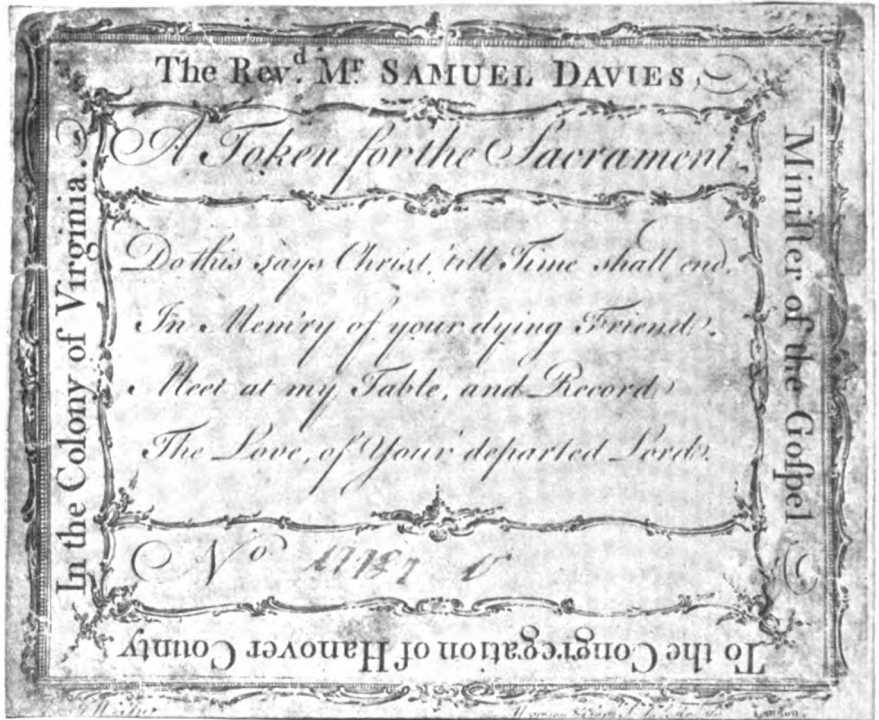 The Rev.d Mr. SAMUEL DAVIES,
Miniſter of the Goſpel
To the Congregation of Hanover County
In the Colony of Virginia.
A Token for the Sacrament
Do this says Christ, 'till Time shall end,
In Mem'ry of your dying Friend.
Meet at my Table, and Record
The Love, of Your departed Lord.
No
London.